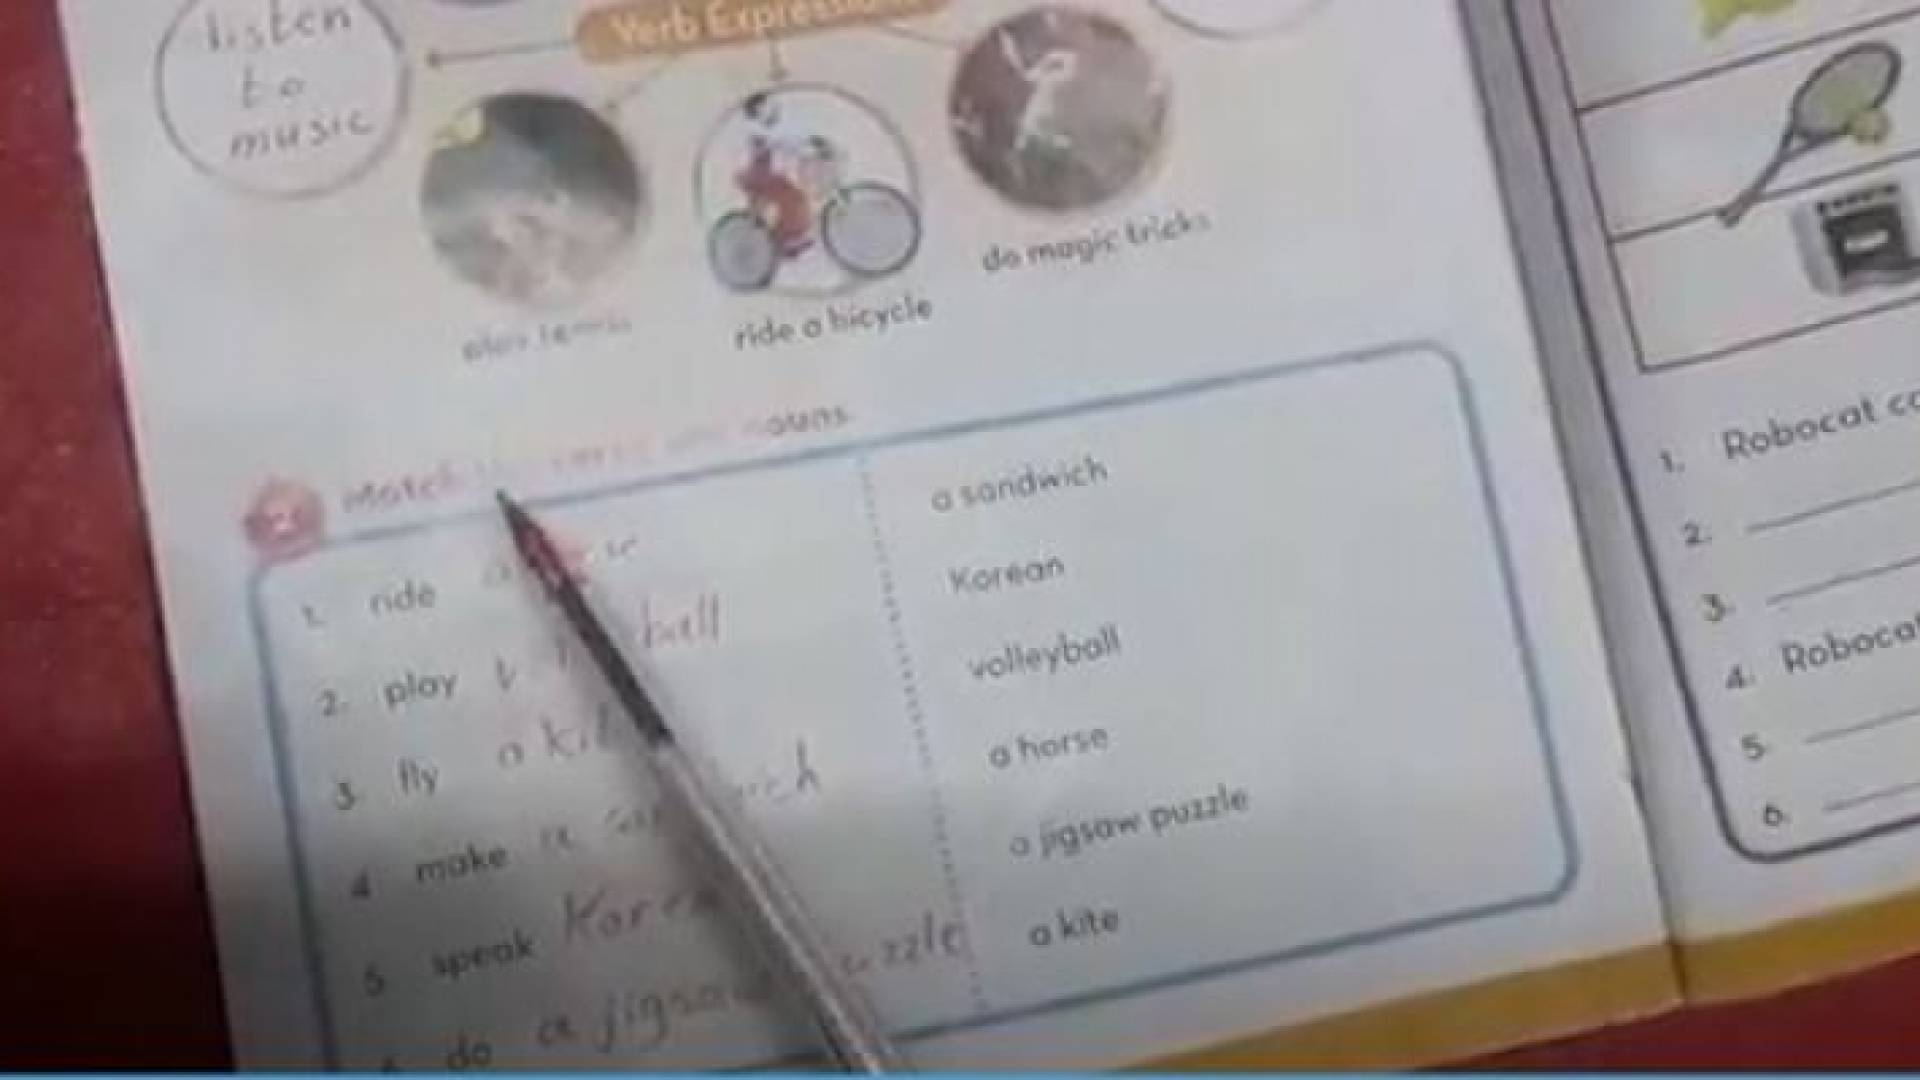 listen
to
music
Verb Expressions
do magic tricks
ride a bicycle
play tennis
2 Match nouns.
1. ride
2. play ball
3. fly a kite
4. make a
5. speak Korean
do a jigsaw puzzle
a sandwich
Korean
volleyball
a horse
a jigsaw puzzle
a kite
1. Robocat
2.
3.
4. Robocat
5.
6.